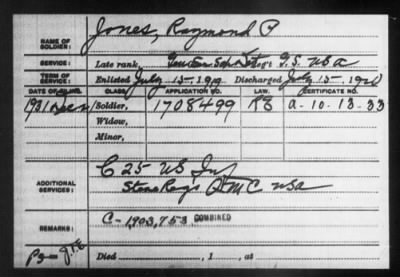 NAME OF SOLDIER: Jones, Raymond P
SERVICE: Late rank, Det G.S. USA
TERM OF SERVICE: Enlisted July 15-1919 Discharged July 15-1920
DATE OF FILING. CLASS. APPLICATION NO. LAW. CERTIFICATE NO.
1931 Soldier, 1708499 A-10-13-33
Widow,
Minor,
ADDITIONAL SERVICES: C 25 US Inf
QMC USA
REMARKS: C-1,903,753 COMBINED
Died , 1 , at